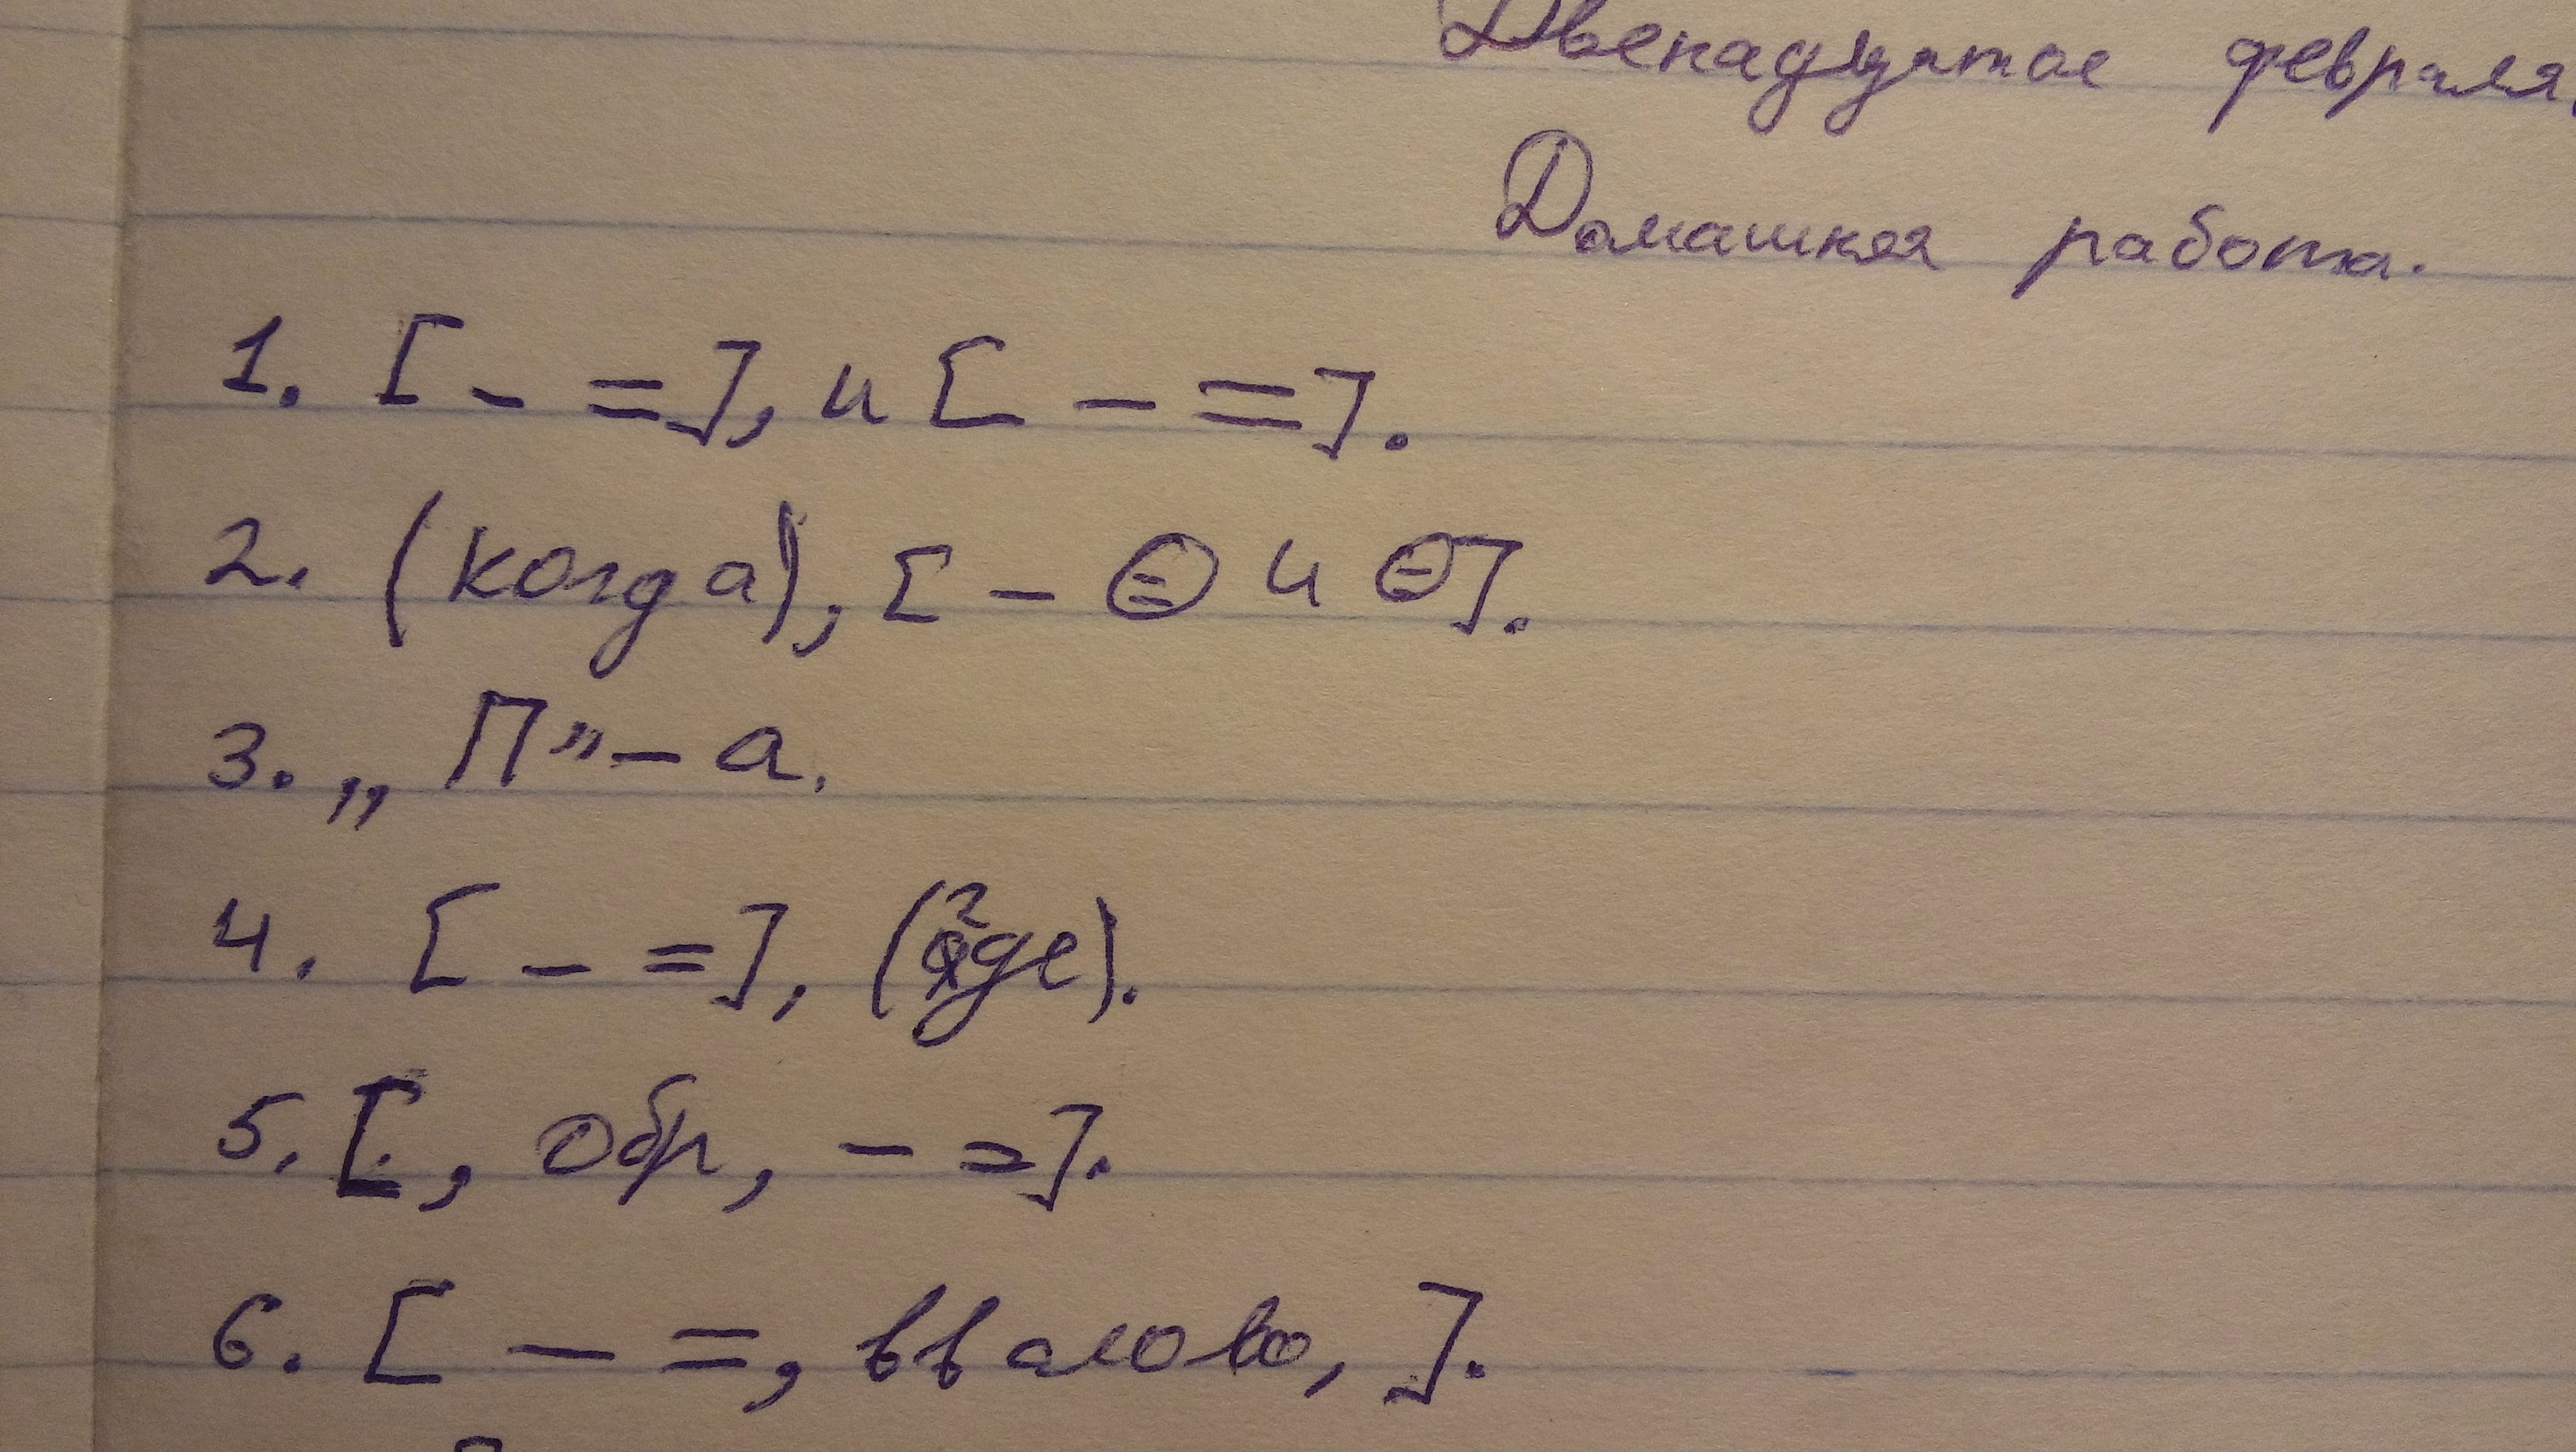 Двенадцатое февраля.
Домашняя работа.
1. [ – = ], и [ – = ].
2. (когда), [ – ⊜ и ⊜ ].
3. „П” – а.
4. [ – = ], (где).
5. [ , обр, – = ].
6. [ – =, вв слово, ].